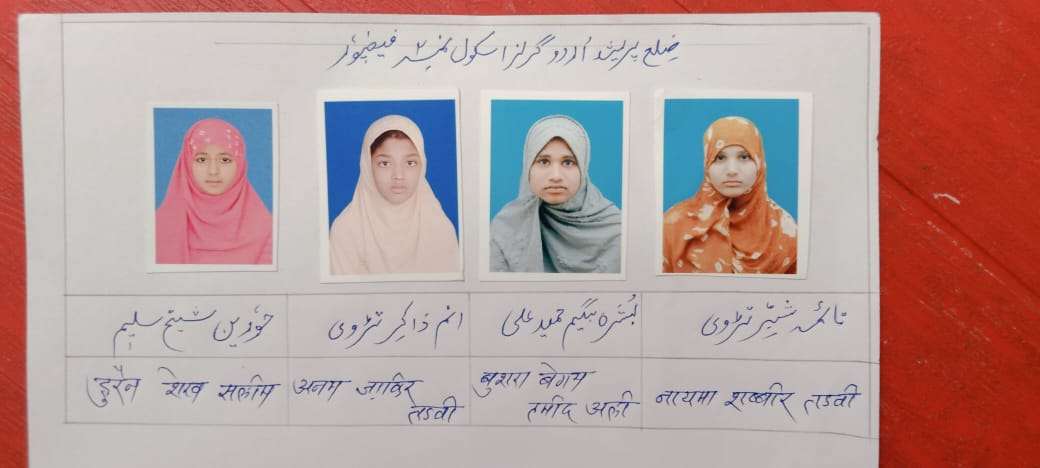 ضلع پریشد اُردو گرلز اسکول نمبر ۲ فیضپور
نائمہ شبیر تڑوی
بُشرہ بیگم حمید علی
انم ذاکر تڑوی
حورین شیخ سلیم
हुरैन शेख सलीम
अनम ज़ाकिर
तडवी
बुशरा बेगम
हमीद अली
नायमा शब्बीर तडवी